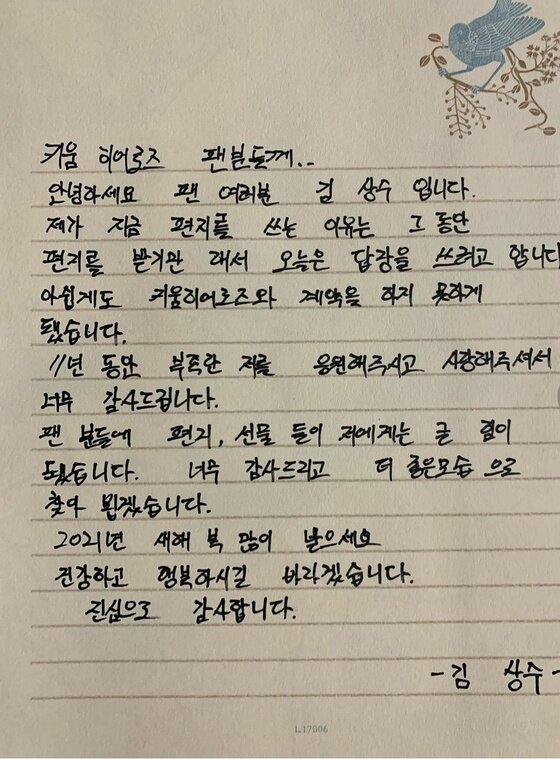 키움 히어로즈 팬분들께..
안녕하세요 팬 여러분 김 상수 입니다.
제가 지금 편지를 쓰는 이유는 그 동안
편지를 받기만 해서 오늘은 답장을 쓰려고 합니다
아쉽게도 키움히어로즈와 계약을 하지 못하게
됐습니다.
11년 동안 부족한 저를 응원해주시고 사랑해주셔서
너무 감사드립니다.
팬 분들에 편지, 선물 들이 저에게는 큰 힘이
됐습니다. 너무 감사드리고 더 좋은모습 으로
찾아 뵙겠습니다.
2021년 새해 복 많이 받으세요
건강하고 행복하시길 바라겠습니다.
진심으로 감사합니다.
-김 상수-
L17006